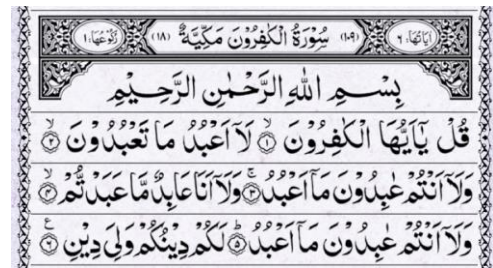 اٰیَاتُهَا ٦ (١٠٩) سُوْرَةُ الْكٰفِرُوْنَ مَكِّيَّةٌ (١٨) رُكُوْعُهَا ١
بِسْمِ اللهِ الرَّحْمٰنِ الرَّحِيْمِ
قُلْ يٰۤاَيُّهَا الْكٰفِرُوْنَ ۙ﴿١﴾ لَاۤ اَعْبُدُ مَا تَعْبُدُوْنَ ۙ﴿٢﴾
وَلَاۤ اَنْتُمْ عٰبِدُوْنَ مَاۤ اَعْبُدُ ۚ﴿٣﴾ وَلَاۤ اَنَا عَابِدٌ مَّا عَبَدْتُّمْ ۙ﴿٤﴾
وَلَاۤ اَنْتُمْ عٰبِدُوْنَ مَاۤ اَعْبُدُ ؕ﴿٥﴾ لَكُمْ دِيْنُكُمْ وَلِيَ دِيْنِ ﴿٦﴾ ع